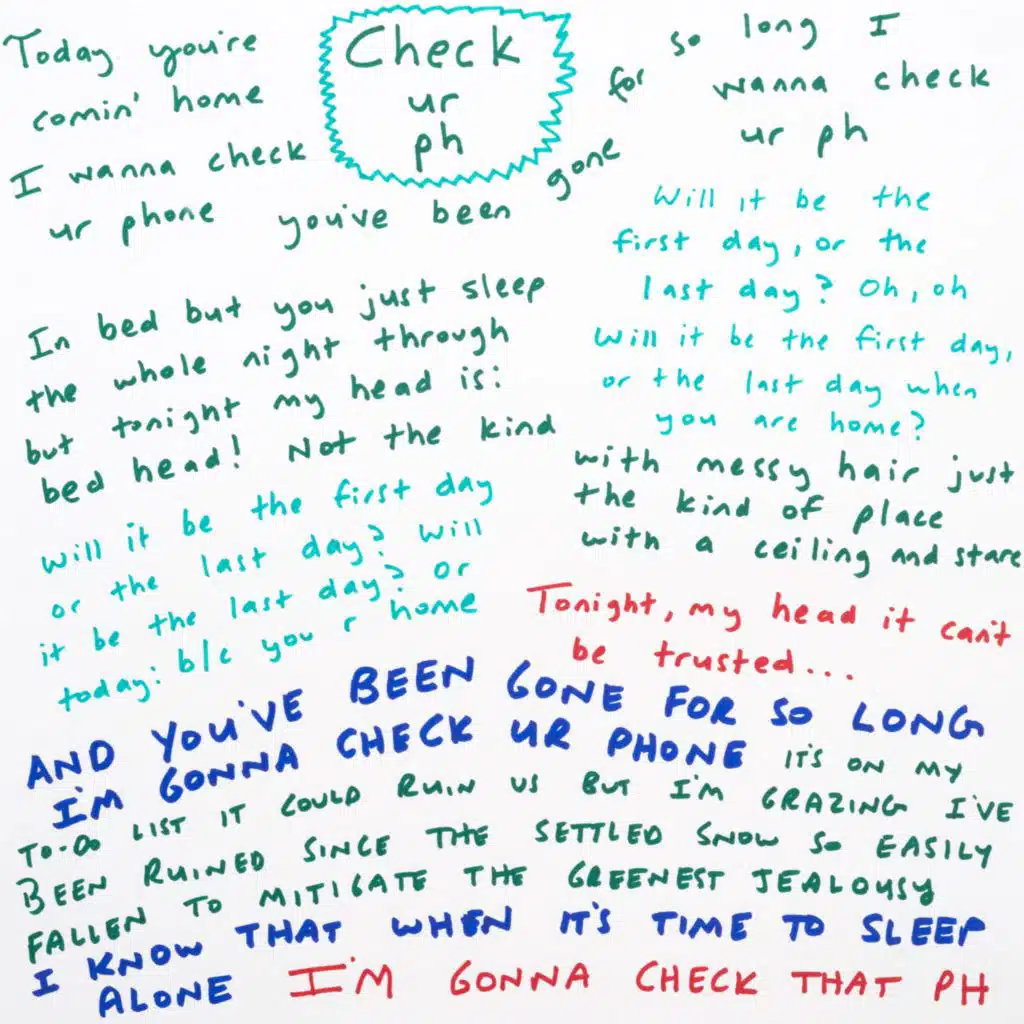 Check
ur
ph
Today you're
comin' home
I wanna check
ur phone you've been gone for so long I
wanna check
ur ph
Will it be the
first day, or the
last day? Oh, oh
Will it be the first day,
or the last day when
you are home?
In bed but you just sleep
the whole night through
but tonight my head is:
bed head! Not the kind
with messy hair just
the kind of place
with a ceiling and stare
will it be the first day
or the last day? Will
it be the last day? or
today: b/c you r home
Tonight, my head it can't
be trusted...
AND YOU'VE BEEN GONE FOR SO LONG
I'M GONNA CHECK UR PHONE IT'S ON MY
TO-DO LIST IT COULD RUIN US BUT I'M GRAZING I'VE
BEEN RUINED SINCE THE SETTLED SNOW SO EASILY
FALLEN TO MITIGATE THE GREENEST JEALOUSY
I KNOW THAT WHEN IT'S TIME TO SLEEP
ALONE I'M GONNA CHECK THAT PH